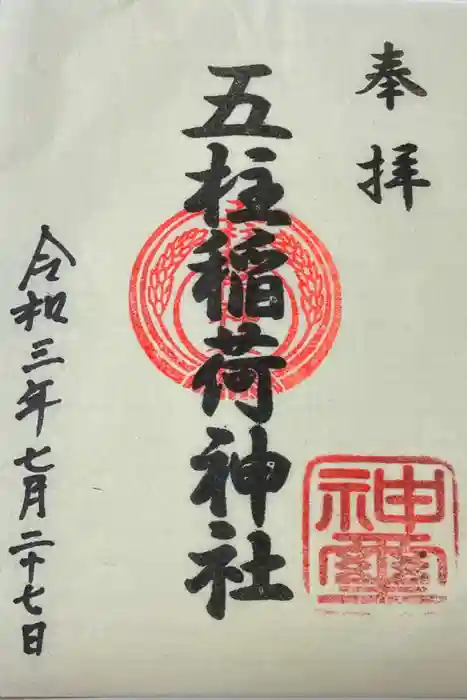 奉拝
五柱稲荷神社
神璽
令和三年七月二十七日